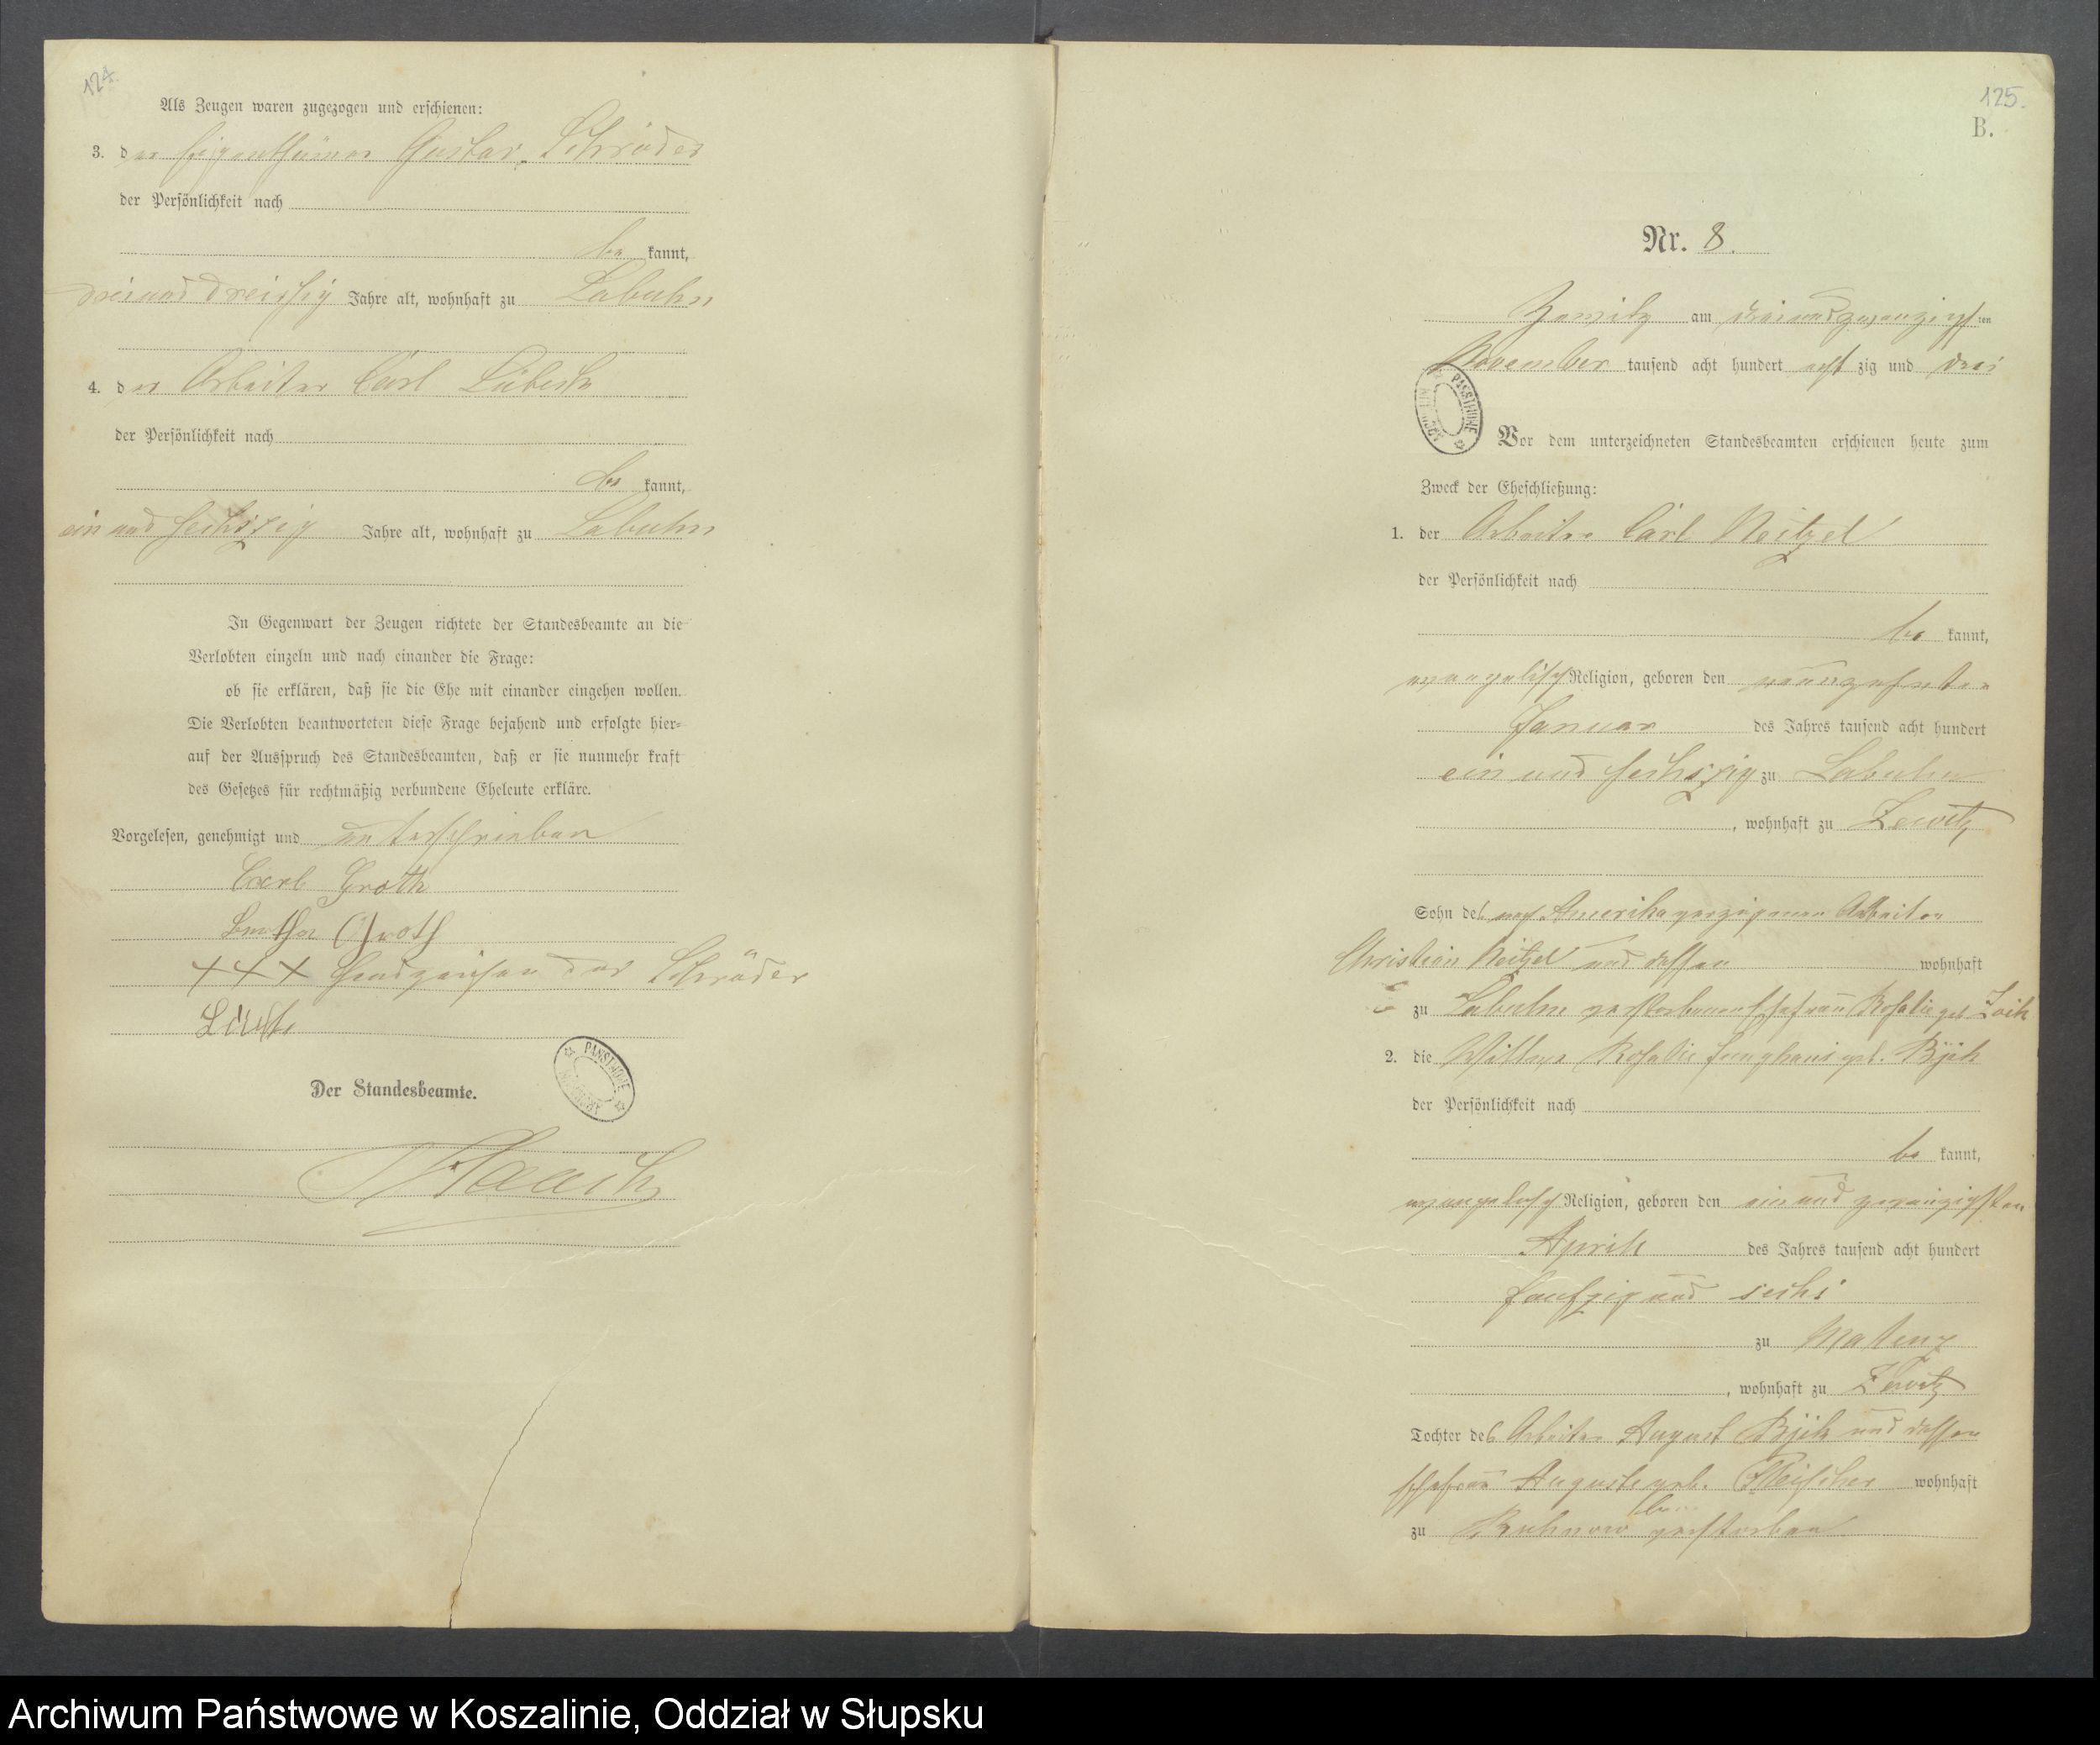 124.
Als Zeugen waren zugezogen und erschienen:
3. der Eigenthümer Gustav Schröder
der Persönlichkeit nach
be kannt,
drei und dreissig Jahre alt, wohnhaft zu Labuhn
4. der Arbeiter Carl
der Persönlichkeit nach
be kannt,
ein und sechszig Jahre alt, wohnhaft zu Labuhn
In Gegenwart der Zeugen richtete der Standesbeamte an die
Verlobten einzeln und nach einander die Frage:
ob sie erklären, daß sie die Ehe mit einander eingehen wollen.
Die Verlobten beantworteten diese Frage bejahend und erfolgte hier=
auf der Ausspruch des Standesbeamten, daß er sie nunmehr kraft
des Gesetzes für rechtmäßig verbundene Eheleute erkläre.
Vorgelesen, genehmigt und unterschrieben
Carl Groth
Bertha Groth
+++ Handzeichen des Schröder
Der Standesbeamte.
125.
B.
Nr. 8.
am dreiundzwanzigsten
November tausend acht hundert acht zig und drei
Vor dem unterzeichneten Standesbeamten erschienen heute zum
Zweck der Eheschließung:
1. der Arbeiter Carl Neitzel
der Persönlichkeit nach
be kannt,
evangelisch Religion, geboren den neunzehnten
Januar des Jahres tausend acht hundert
ein und sechszig zu Labuhn
, wohnhaft zu Zewitz
Sohn des nach Amerika verzogenen Arbeiter
Christian Neitzel und dessen wohnhaft
zu Labuhn verstorbenen Ehefrau Rosalie geb.
2. die Wittwe Rosalie geb.
der Persönlichkeit nach
be kannt,
evangelisch Religion, geboren den ein und zwanzigsten
April des Jahres tausend acht hundert
fünfzig und sechs
zu
, wohnhaft zu Zewitz
Tochter des Arbeiter August und dessen
Ehefrau Auguste geb. Fleischer wohnhaft
zu verstorben
PAŃSTWOWE
Archiwum Państwowe w Koszalinie, Oddział w Słupsku